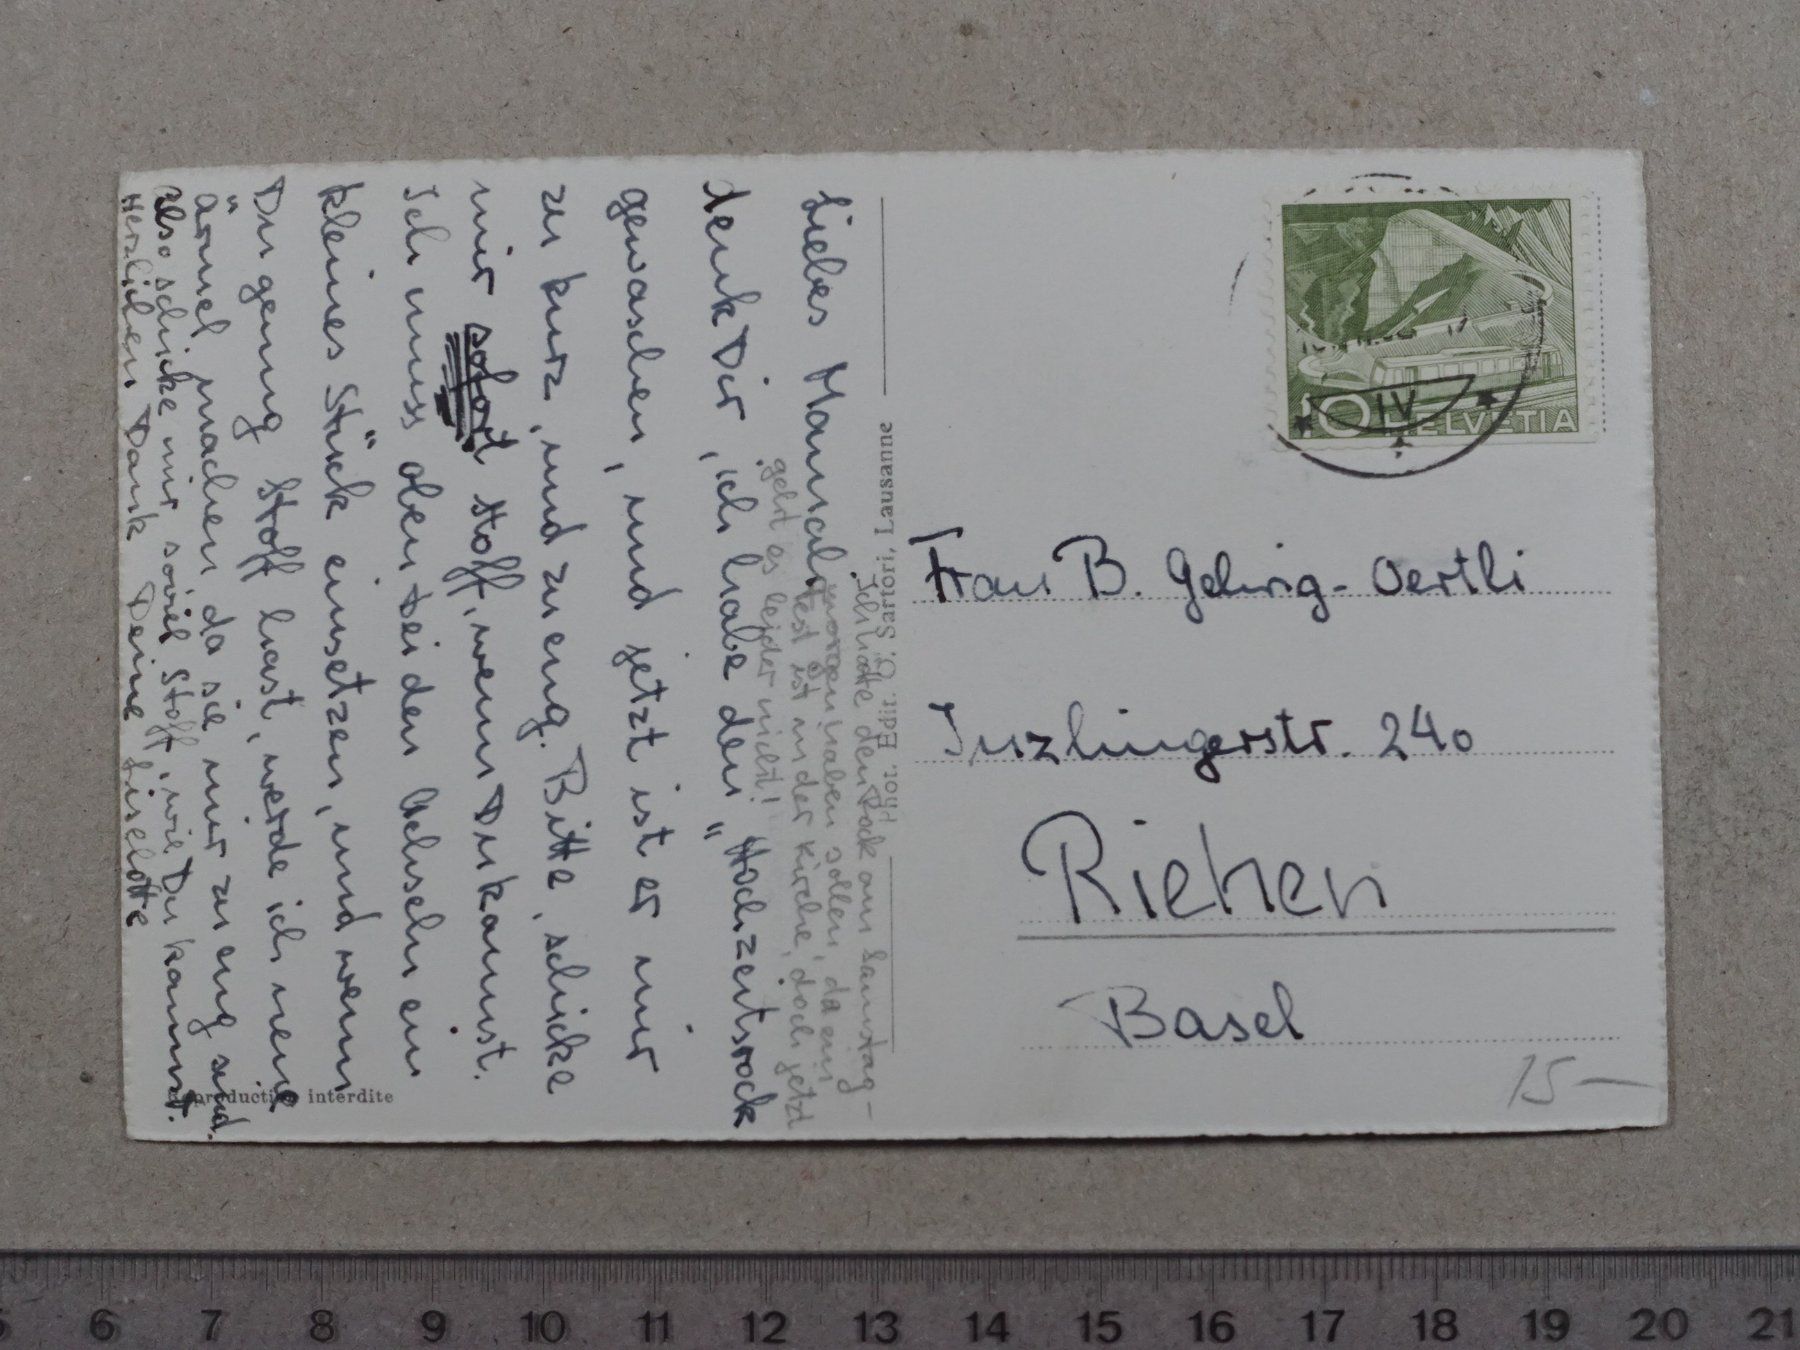 Liebes Mamali,
denk Dir, ich habe den "Hochzeitsrock
gewaschen, und jetzt ist er mir
zu kurz, und zu eng. Bitte, schicke
mir sofort Stoff, wenn Du kannst.
Ich muss oben bei den Achseln ein
kleines Stück einsetzen, und wenn
Du genug Stoff hast, werde ich neue
Ärmel machen da sie mir zu eng sind.
Also schicke mir soviel Stoff, wie Du kannst.
Herzlichen Dank Deine Liselotte
Ich hätte den Rock am Samstag-
morgen haben sollen, da ein
Fest ist in der Kirche, doch jetzt
geht es leider nicht!
Reproduction interdite
Phot. Edit. O. Sartori, Lausanne
10 HELVETIA
IV
Frau B. Gehrig-Oertli
Inzlingerstr. 240
Riehen
Basel
15-
5 6 7 8 9 10 11 12 13 14 15 16 17 18 19 20 21